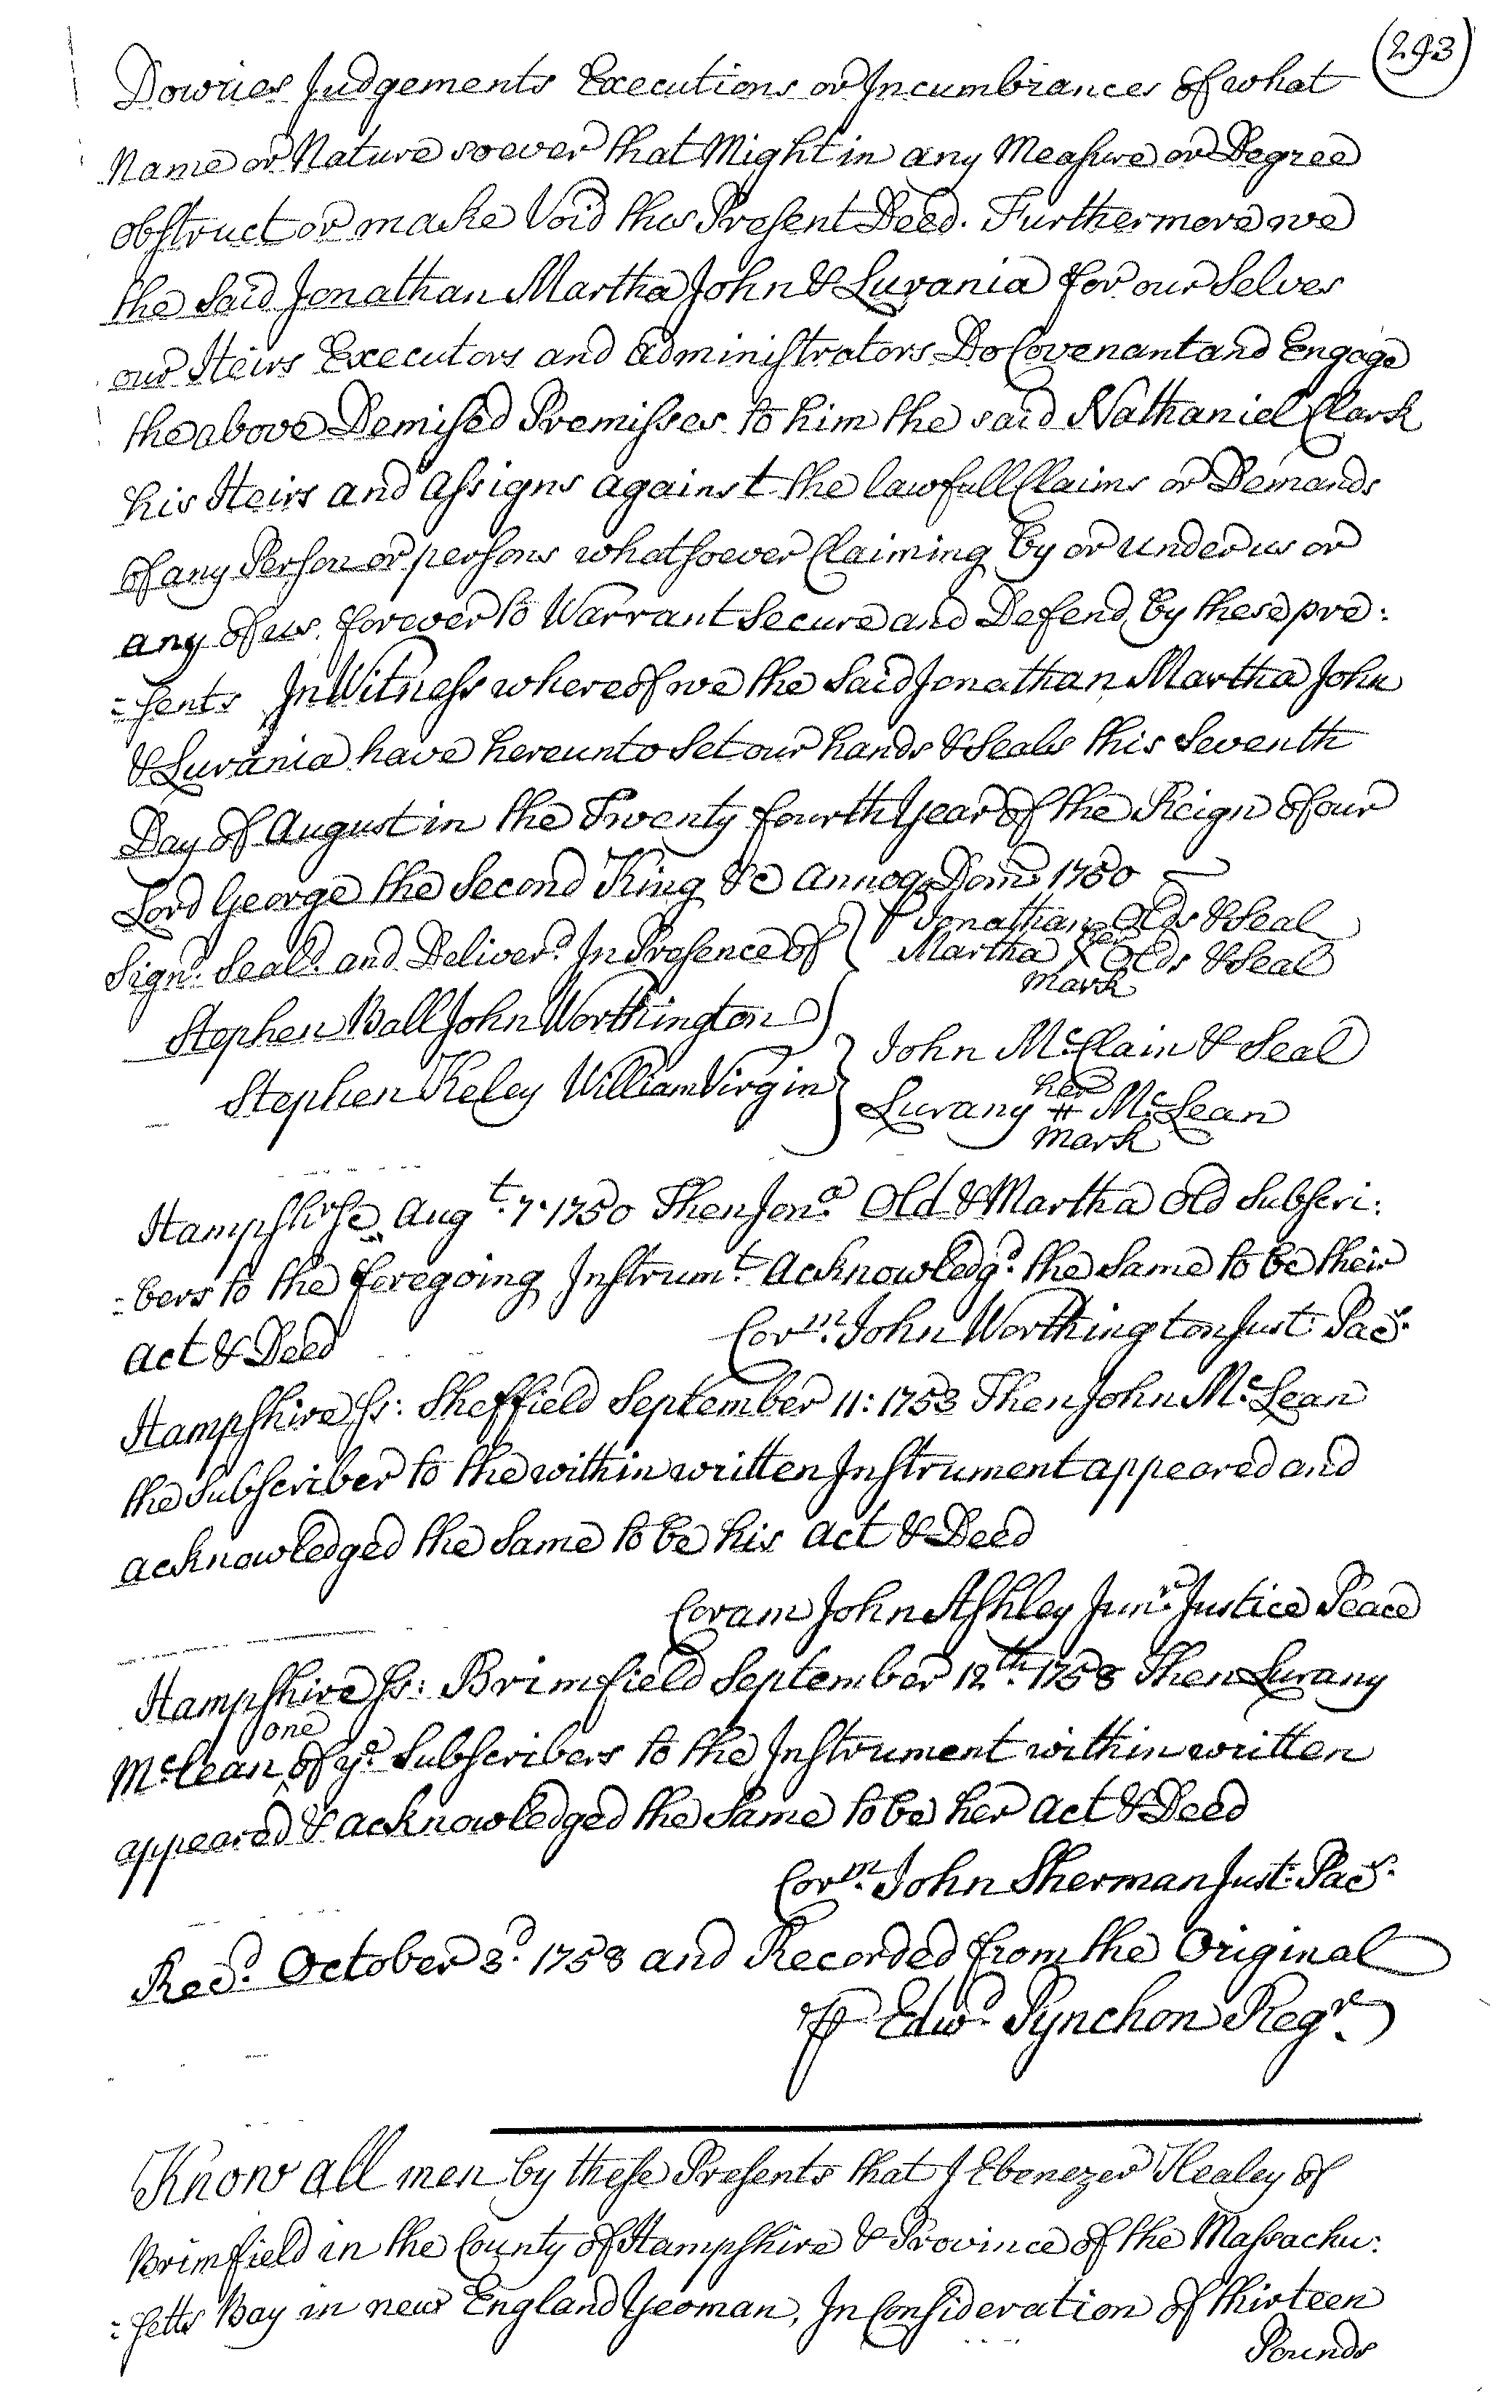 (293)
Dowries Judgements Executions or Incumbrances of what
Name or Nature soever that Might in any Measure or Degree
obstruct or make Void this Present Deed. Furthermore we
the Said Jonathan Martha John & Lurania for our Selves
our Heirs Executors and Administrators Do Covenant and Engage
the above Demised Premisses to him the said Nathaniel Clark
his Heirs and Assigns against the lawfull Claims or Demands
of any Person or persons whatsoever Claiming by or under us or
any of us, forever to Warrant Secure and Defend by these pre:
=sents In Witness whereof we the Said Jonathan Martha John
& Lurania have hereunto Set our hands & Seals this Seventh
Day of August in the Twenty fourth Year of the Reign of our
Lord George the Second King &c Annoq Dom 1750
Sign'd. Seal'd. and Deliver'd. In Presence of Jonathan Olds & Seal
Martha her X Olds & Seal
mark
Stephen Ball John Worthington
John McClain & Seal
Stephen Keley William Virgin
her
Lurany # McLean
mark
Hampshire Augt. 7. 1750 Then Jona. Old & Martha Old Subscri:
=bers to the foregoing Instrumt. Acknowledgd. the Same to be their
Act & Deed Corm. John Worthington Just. Pacs.
Hampshire Ss: Sheffield September 11: 1753 Then John McLean
the Subscriber to the within written Instrument appeared and
acknowledged the Same to be his Act & Deed
Coram John Ashley Junr. Justice Peace
Hampshire Ss: Brimfield September 12th. 1758 Then Lurany
one
McLean of ye. Subscribers to the Instrument within written
appeared & acknowledged the Same to be her Act & Deed
Corm. John Sherman Just. Pacs.
Recd. October 3d. 1758 and Recorded from the Original
P Edwd. Pynchon Regr.
Know all men by these Presents that I Ebenezer Healey of
Brimfield in the County of Hampshire & Province of the Massachu:
=setts Bay in new England Yeoman, In Consideration of thirteen
Pounds